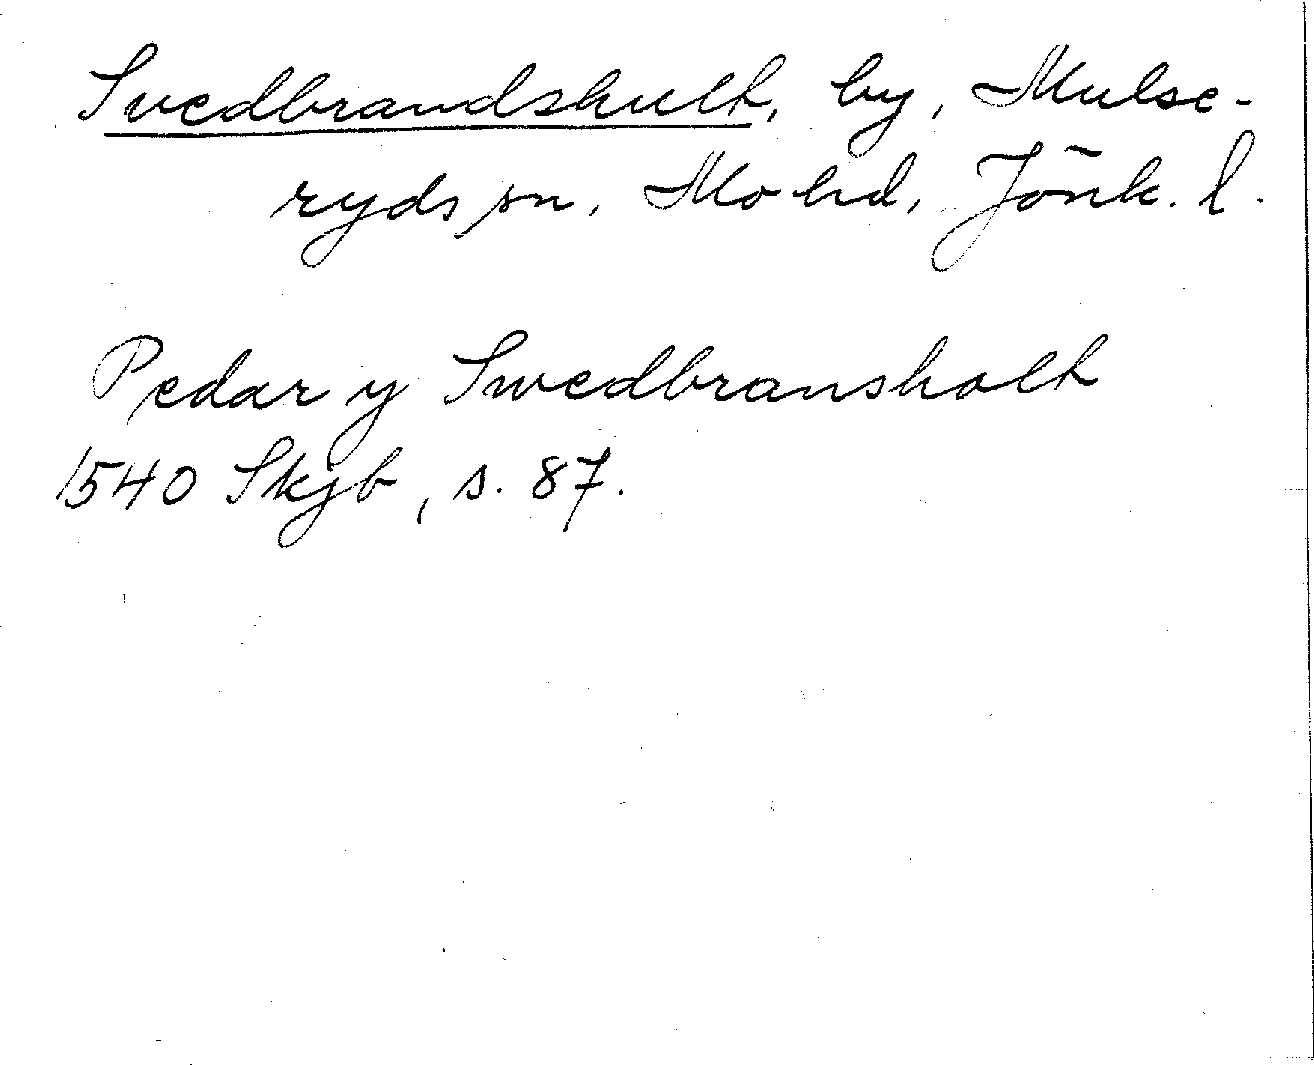 Svedbrandshult, by, Mulse-
ryds sn, Mo hd, Jönk. l.
Pedar y Swedbransholt
1540 Skjb, s. 87.